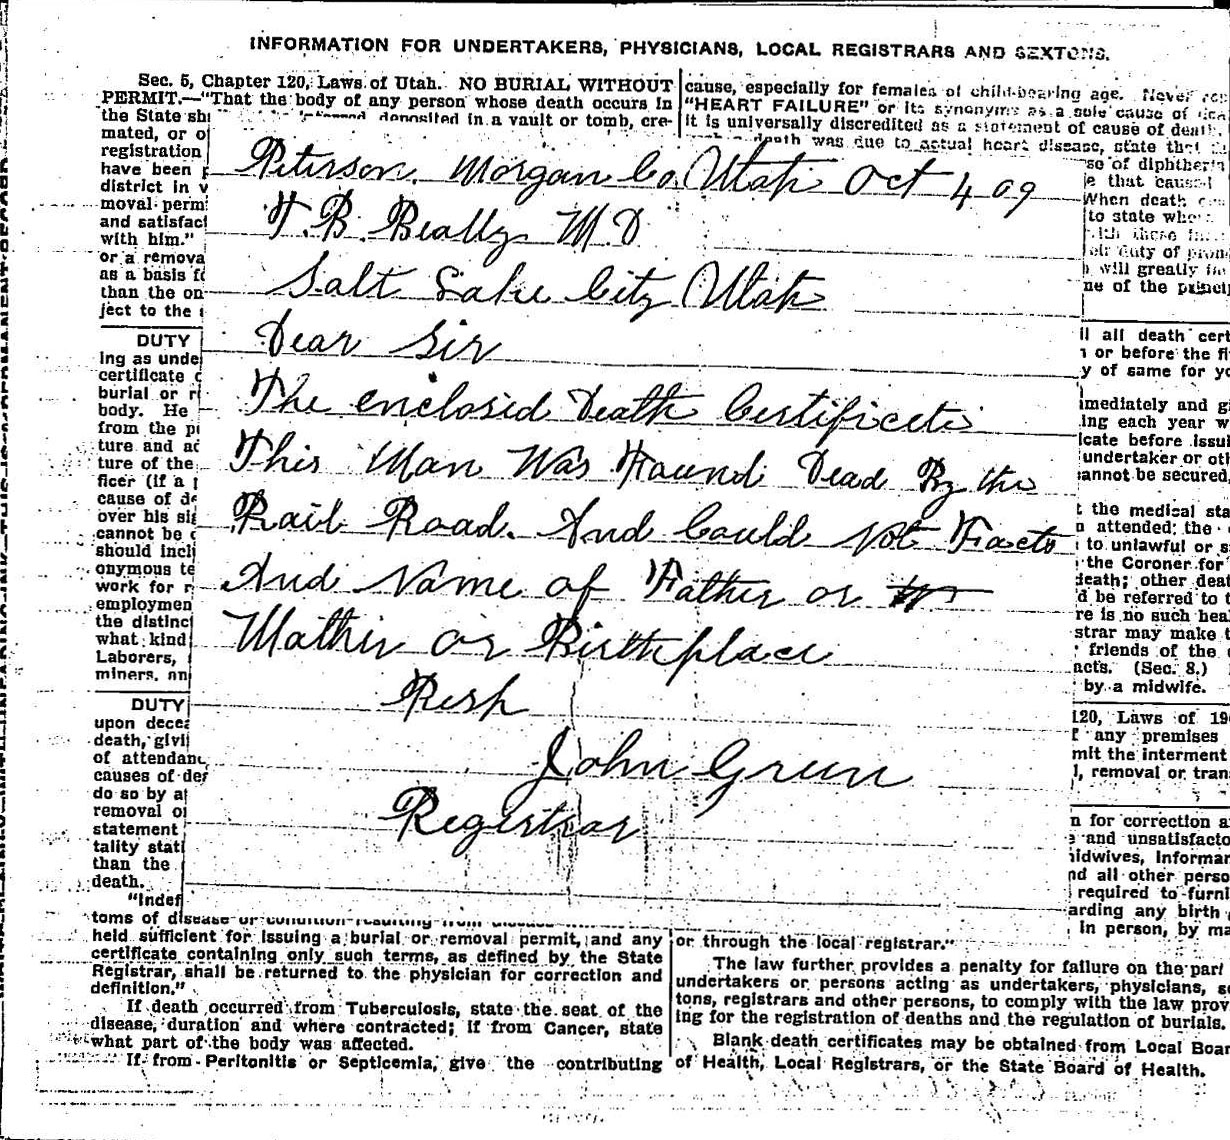 INFORMATION FOR UNDERTAKERS, PHYSICIANS, LOCAL REGISTRARS AND SEXTONS.
Sec. 5, Chapter 120, Laws of Utah. NO BURIAL WITHOUT
PERMIT.—"That the body of any person whose death occurs in
the State
deposited in a vault or tomb, cre-
mated, or
registration
have been
district in
moval perm
and satisfac
with him."
or a remova
as a basis
than the on
ject to the
DUTY
ing as unde
certificate
burial or
body. He
from the
ture and
ture of the
ficer (if a
cause of
over his
cannot be
should incl
onymous te
work for
employmen
the distinc
what kind
Laborers,
miners,
DUTY
upon decea
death, givi
of attendan
causes of
do so by
removal
statement
tality stati
than the
death.
"Indef
toms of disease or condition resulting from disease
held sufficient for issuing a burial or removal permit, and any
certificate containing only such terms, as defined by the State
Registrar, shall be returned to the physician for correction and
definition."
If death occurred from Tuberculosis, state the seat of the
disease, duration and where contracted; if from Cancer, state
what part of the body was affected.
If from Peritonitis or Septicemia, give the contributing
cause, especially for females of child-bearing age. Never
"HEART FAILURE" or its synonyms as a sole cause of
it is universally discredited as a statement of cause of death
death was due to actual heart disease, state
of diphtheria
that caused
When death
to state
duty of
will greatly
of the
all death cert
or before the
of same for
mediately and
ing each year
icate before issu
undertaker or
annot be secured,
the medical sta
attended; the
to unlawful or
the Coroner for
death; other deat
be referred to
re is no such heal
strar may make
friends of the
acts. (Sec. 8.)
by a midwife.
120, Laws of 19
any premises
mit the interment
, removal or tran
for correction
and unsatisfacto
idwives, informan
nd all other perso
required to furni
arding any birth
in person, by ma
or through the local registrar."
The law further provides a penalty for failure on the part
undertakers or persons acting as undertakers, physicians,
tons, registrars and other persons, to comply with the law prov
ing for the registration of deaths and the regulation of burials.
Blank death certificates may be obtained from Local Boar
of Health, Local Registrars, or the State Board of Health.
Peterson Morgan Co, Utah Oct 4 09
T. B. Beatty M D
Salt Lake City Utah
Dear Sir
The enclosed Death Certificate
This Man Was Found Dead By the
Rail Road. And Could Not Facts
And Name of Father or
Mother or Birthplace
Resp
John Green
Registrar